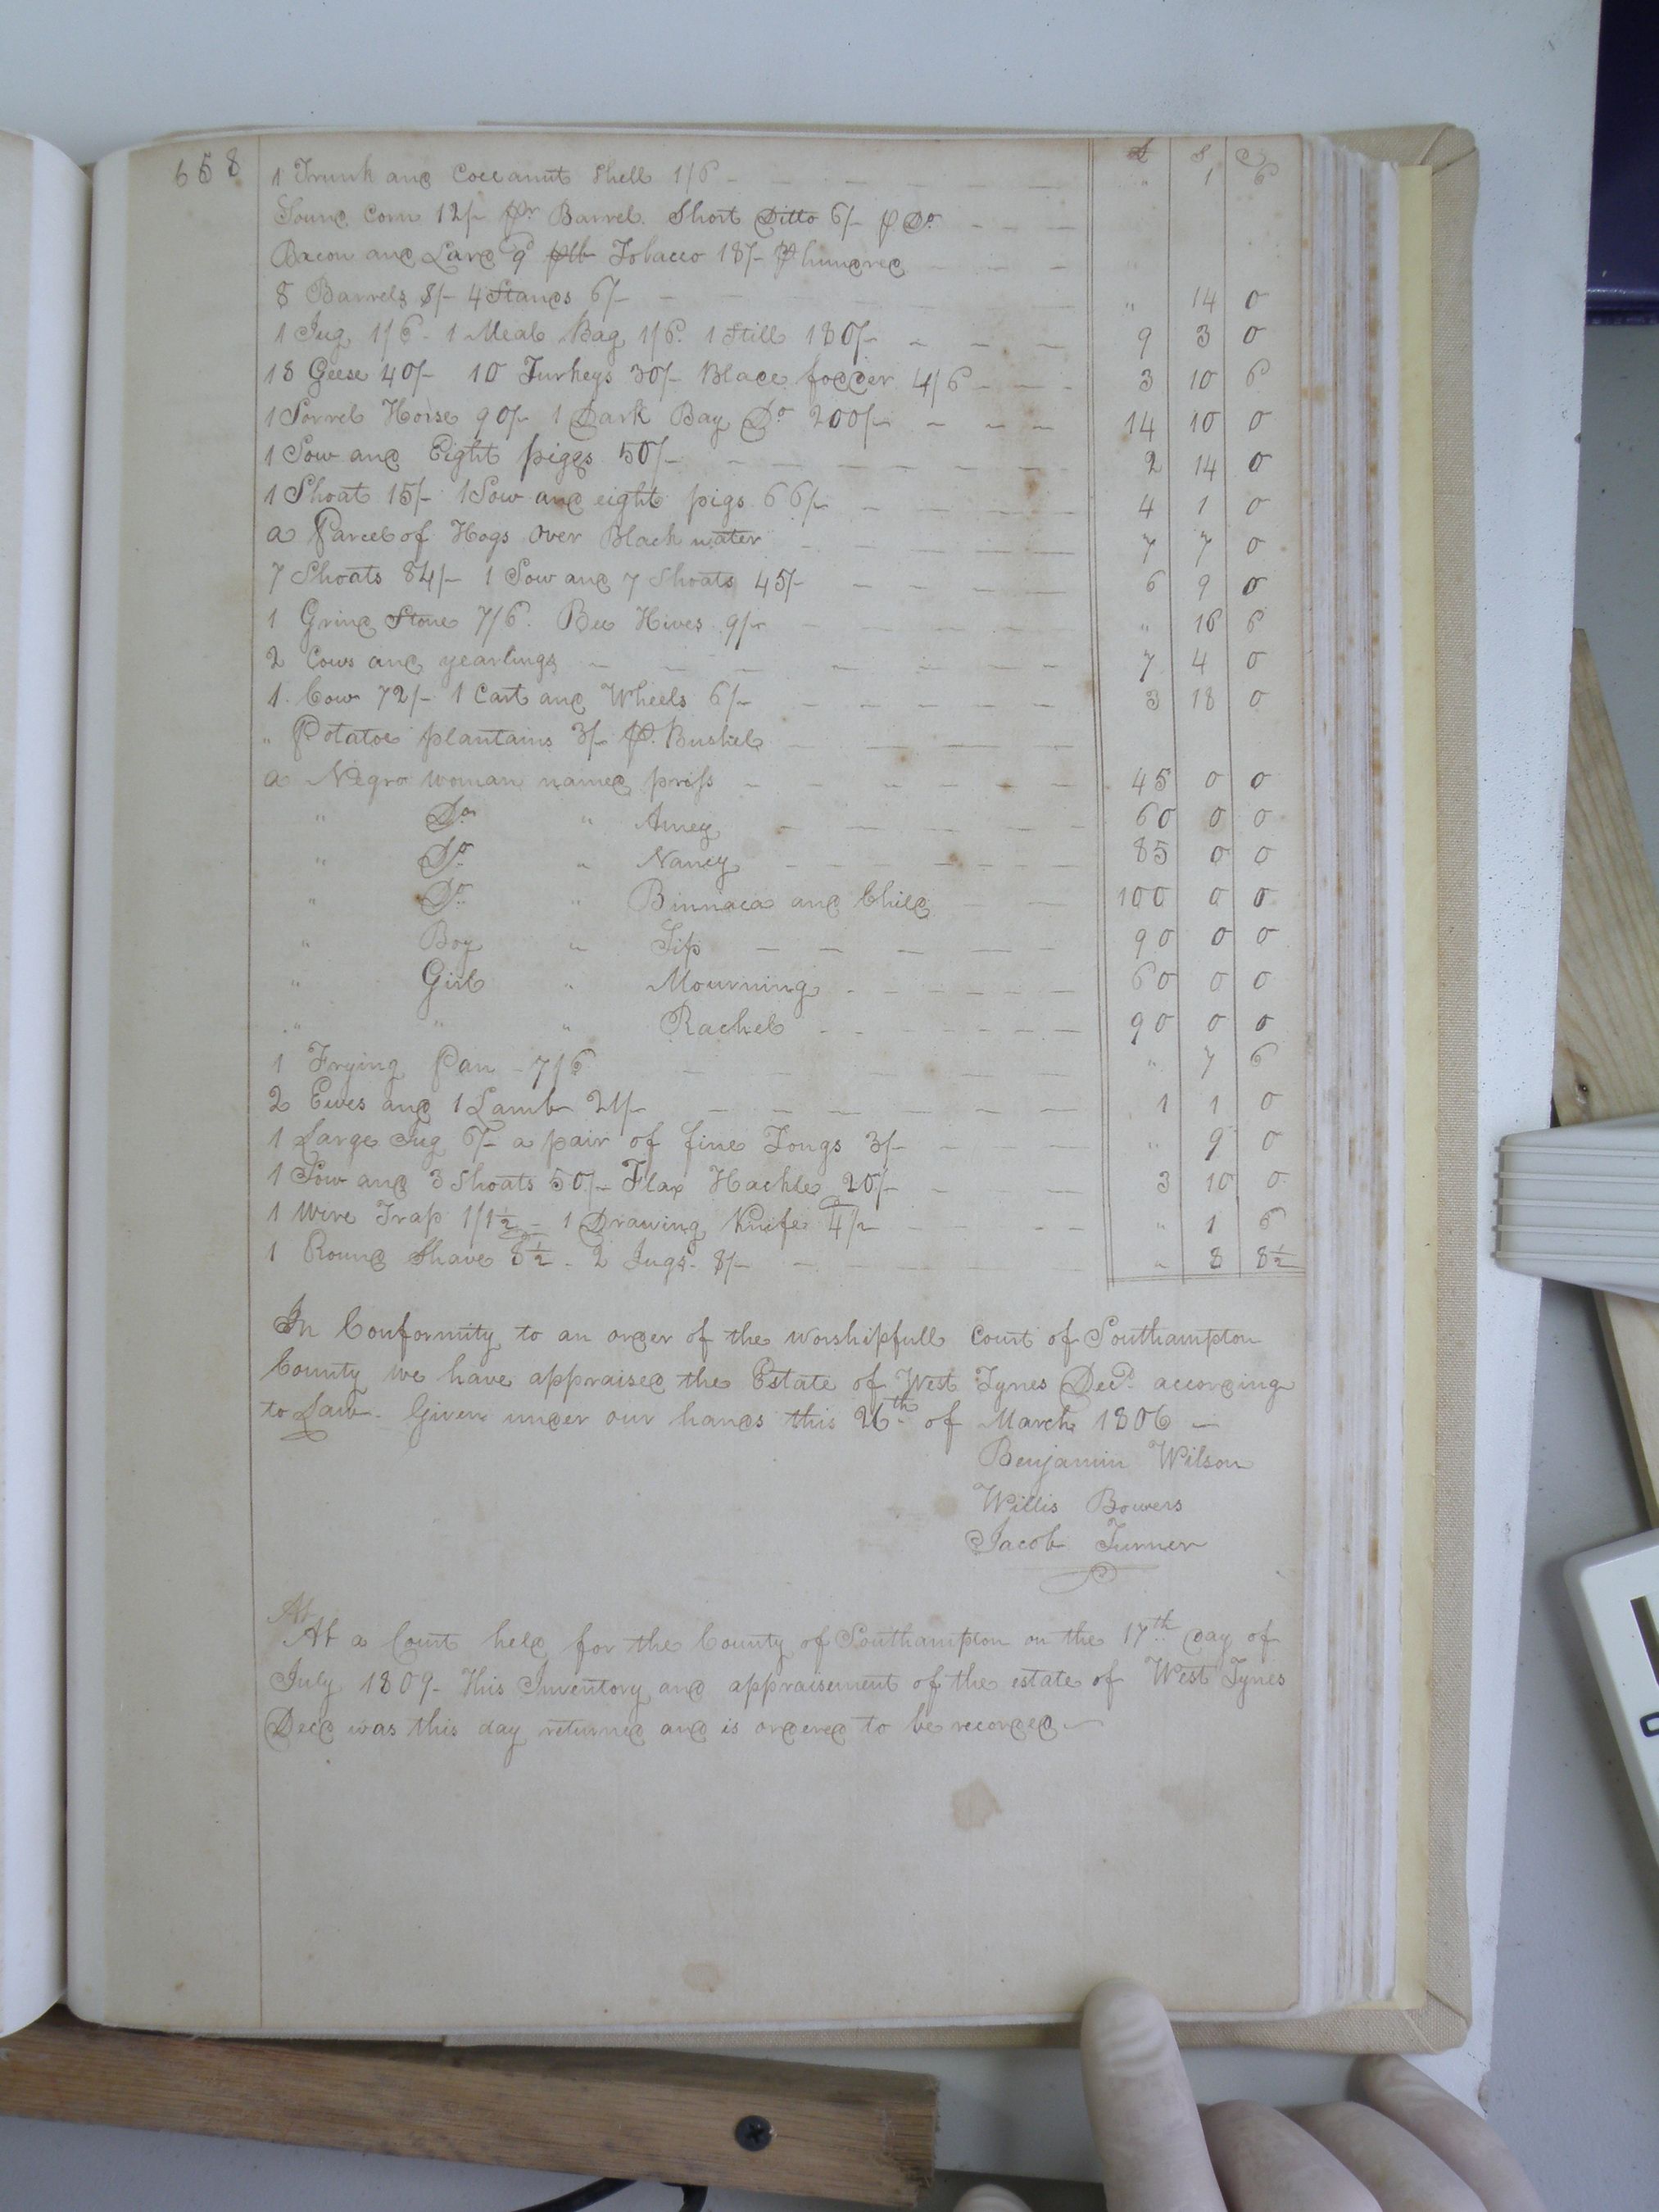 658
£ S d
1 Trunk and Coccanut Shell 1/6 " 1 6
Sound Corn 12/- pr Barrel. Short Ditto 6/- p Do
Bacon and Lard 9d plb Tobacco 18/- P hundred
8 Barrels 8/- 4 Stands 6/- " 14 0
1 Jug 1/6 - 1 Meal Bag 1/6. 1 Still 180/- 9 3 0
18 Geese 40/- 10 Turkeys 30/- Blade fodder 4/6 3 10 6
1 Sorrel Horse 90/- 1 Dark Bay Do 200/- 14 10 0
1 Sow and Eight piggs 50/- 2 14 0
1 Shoat 15/- 1 Sow and eight pigs 66/- 4 1 0
a Parcel of Hogs Over Black water 7 7 0
7 Shoats 84/- 1 Sow and 7 Shoats 45/- 6 9 0
1 Grind Stone 7/6. Bee Hives 9/- " 16 6
2 Cows and yearlings 7 4 0
1. Cow 72/- 1 Cart and Wheels 6/- 3 18 0
" Potatoe plantains 3/- p. Bushel
a Negro woman named priss 45 0 0
" Do " Amey 60 0 0
" Do " Nancy 85 0 0
" Do " Binnaca and Child 100 0 0
" Boy " Sip 90 0 0
" Girl " Mourning 60 0 0
" " " Rachel 90 0 0
1 Frying Pan - 7/6 " 7 6
2 Ewes and 1 Lamb 21/- 1 1 0
1 Large Jug 6/- a pair of fine Tongs 3/- " 9 0
1 Sow and 3 Shoats 50/- Flax Hackle 20/- 3 10 0
1 Wire Trap 1/1½ - 1 Drawing Knife 4½ " 1 6
1 Round Shave 8½ - 2 Jugs - 8/- " 8 8½
In Conformity to an order of the worshipfull Court of Southampton
County we have appraised the Estate of West Tynes Decd. according
to Law. Given under our hands this 26th of March 1806 -
Benjamin Wilson
Willis Bowers
Jacob Turner
At
At a Court held for the County of Southampton on the 17th day of
July 1809 - This Inventory and appraisement of the estate of West Tynes
Decd was this day returned and is ordered to be recorded -